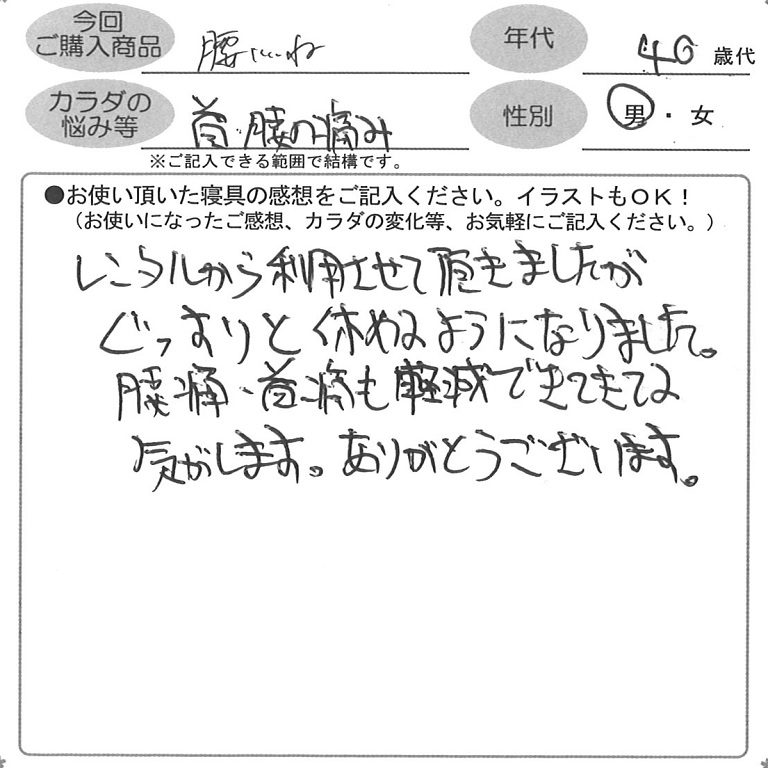 今回
ご購入商品
腰いいね
年代
40歳代
カラダの
悩み等
首・腰の痛み
性別
男・女
※ご記入できる範囲で結構です。
●お使い頂いた寝具の感想をご記入ください。イラストもOK!
(お使いになったご感想、カラダの変化等、お気軽にご記入ください。)
レンタルから利用させて頂きましたが
ぐっすりと休めるようになりました。
腰痛・首痛も軽減できてきてる
気がします。ありがとうございます。